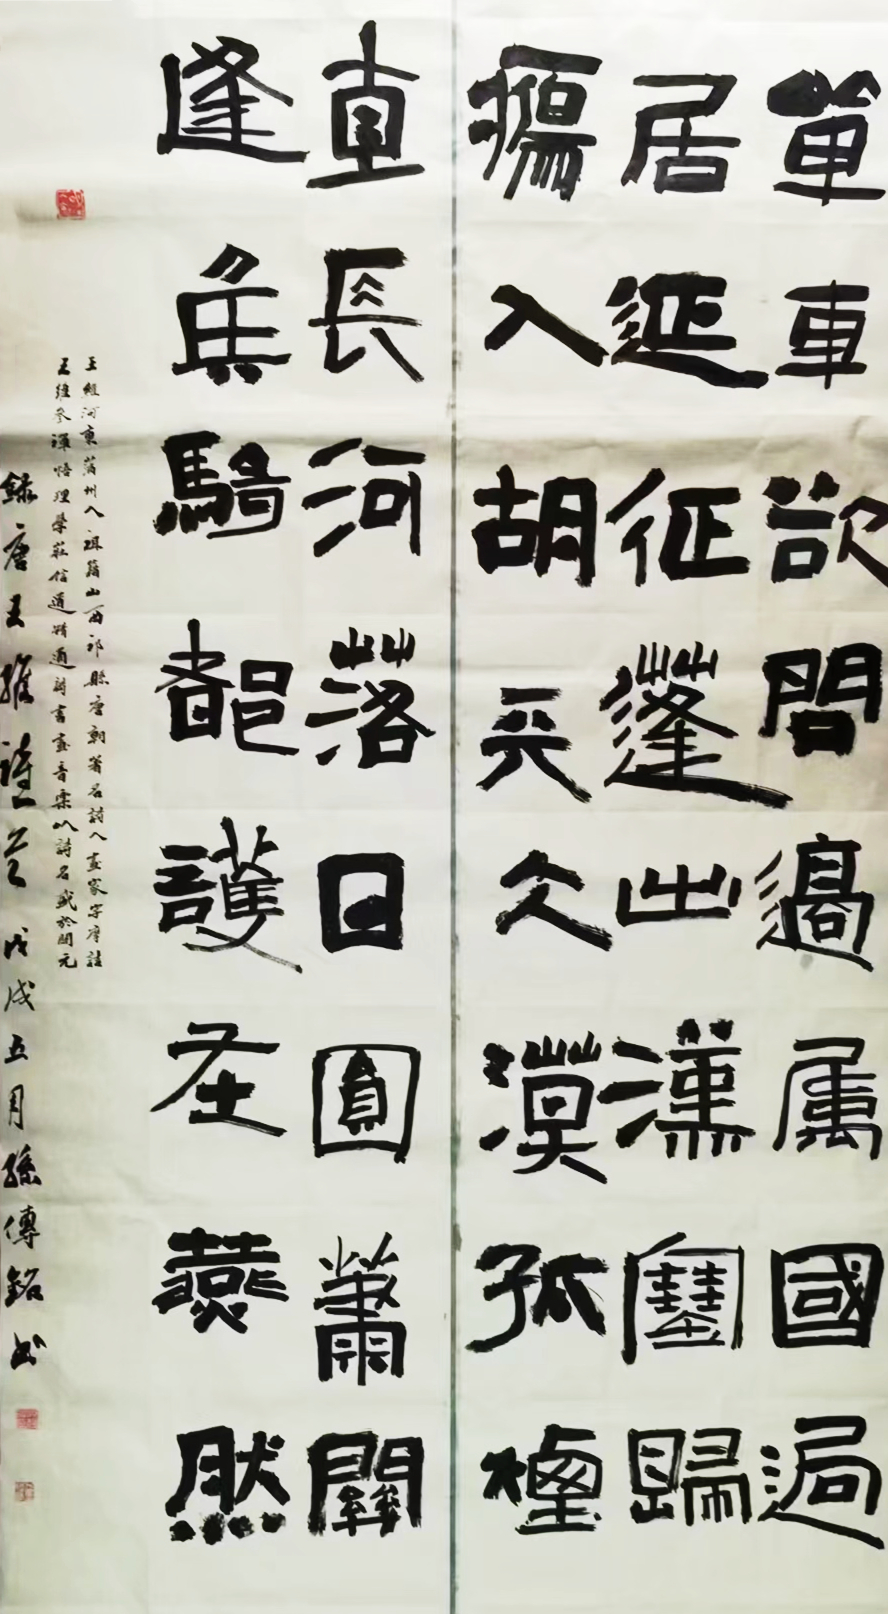 單車欲問邊屬國過
居延征蓬出漢塞歸
鴈入胡天大漠孤煙
直長河落日圓蕭關
逢兵騎都護在燕然
王維河東蒲州人祖籍山西祁縣唐朝著名詩人畫家字摩詰
王維參禪悟理學莊信道精通詩書畫音樂以詩名盛於開元
錄唐王維詩一首戊戌五月孫傳銘書